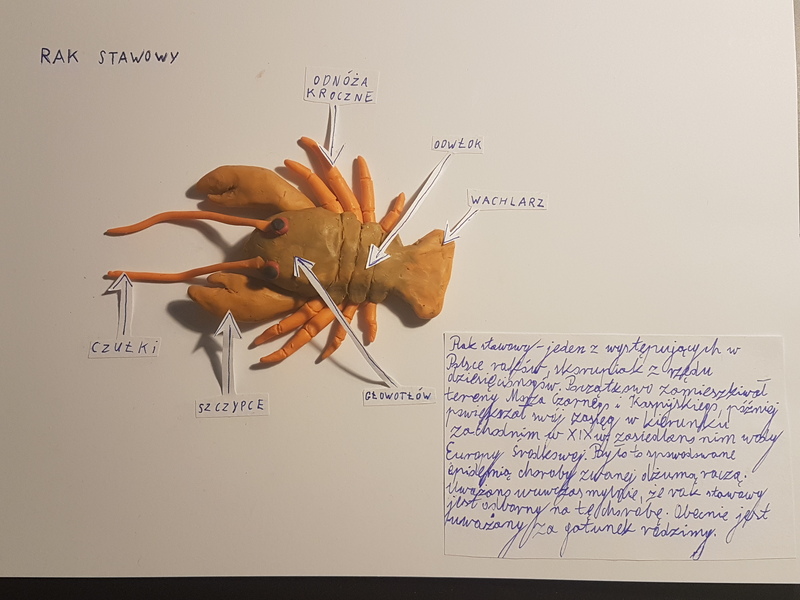 RAK STAWOWY
ODNÓŻA
KROCZNE
ODWŁOK
WACHLARZ
CZUŁKI
SZCZYPCE
GŁOWOTŁÓW
Rak stawowy – jeden z występujących w
Polsce raków, skorupiak z rzędu
dziesięcionogów. Początkowo zamieszkiwał
tereny Morza Czarnego i Kaspijskiego, później
powiększał swój zasięg w kierunku
zachodnim w XIXw. zasiedlano nim wody
Europy Środkowej. Było to spowodowane
epidemią choroby zwanej dżumą raczą.
Uważano wówczas mylnie, że rak stawowy
jest odporny na tę chorobę. Obecnie jest
uważany za gatunek rodzimy.